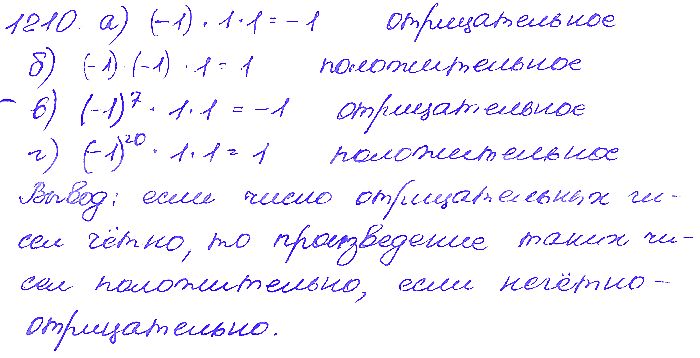 1210. а) (-1) · 1 · 1 = -1 отрицательное
б) (-1) (-1) · 1 = 1 положительное
в) (-1)⁷ · 1 · 1 = -1 отрицательное
г) (-1)²⁰ · 1 · 1 = 1 положительное
Вывод: если число отрицательных чи-
сел чётно, то произведение таких чи-
сел положительно, если нечётно -
отрицательно.